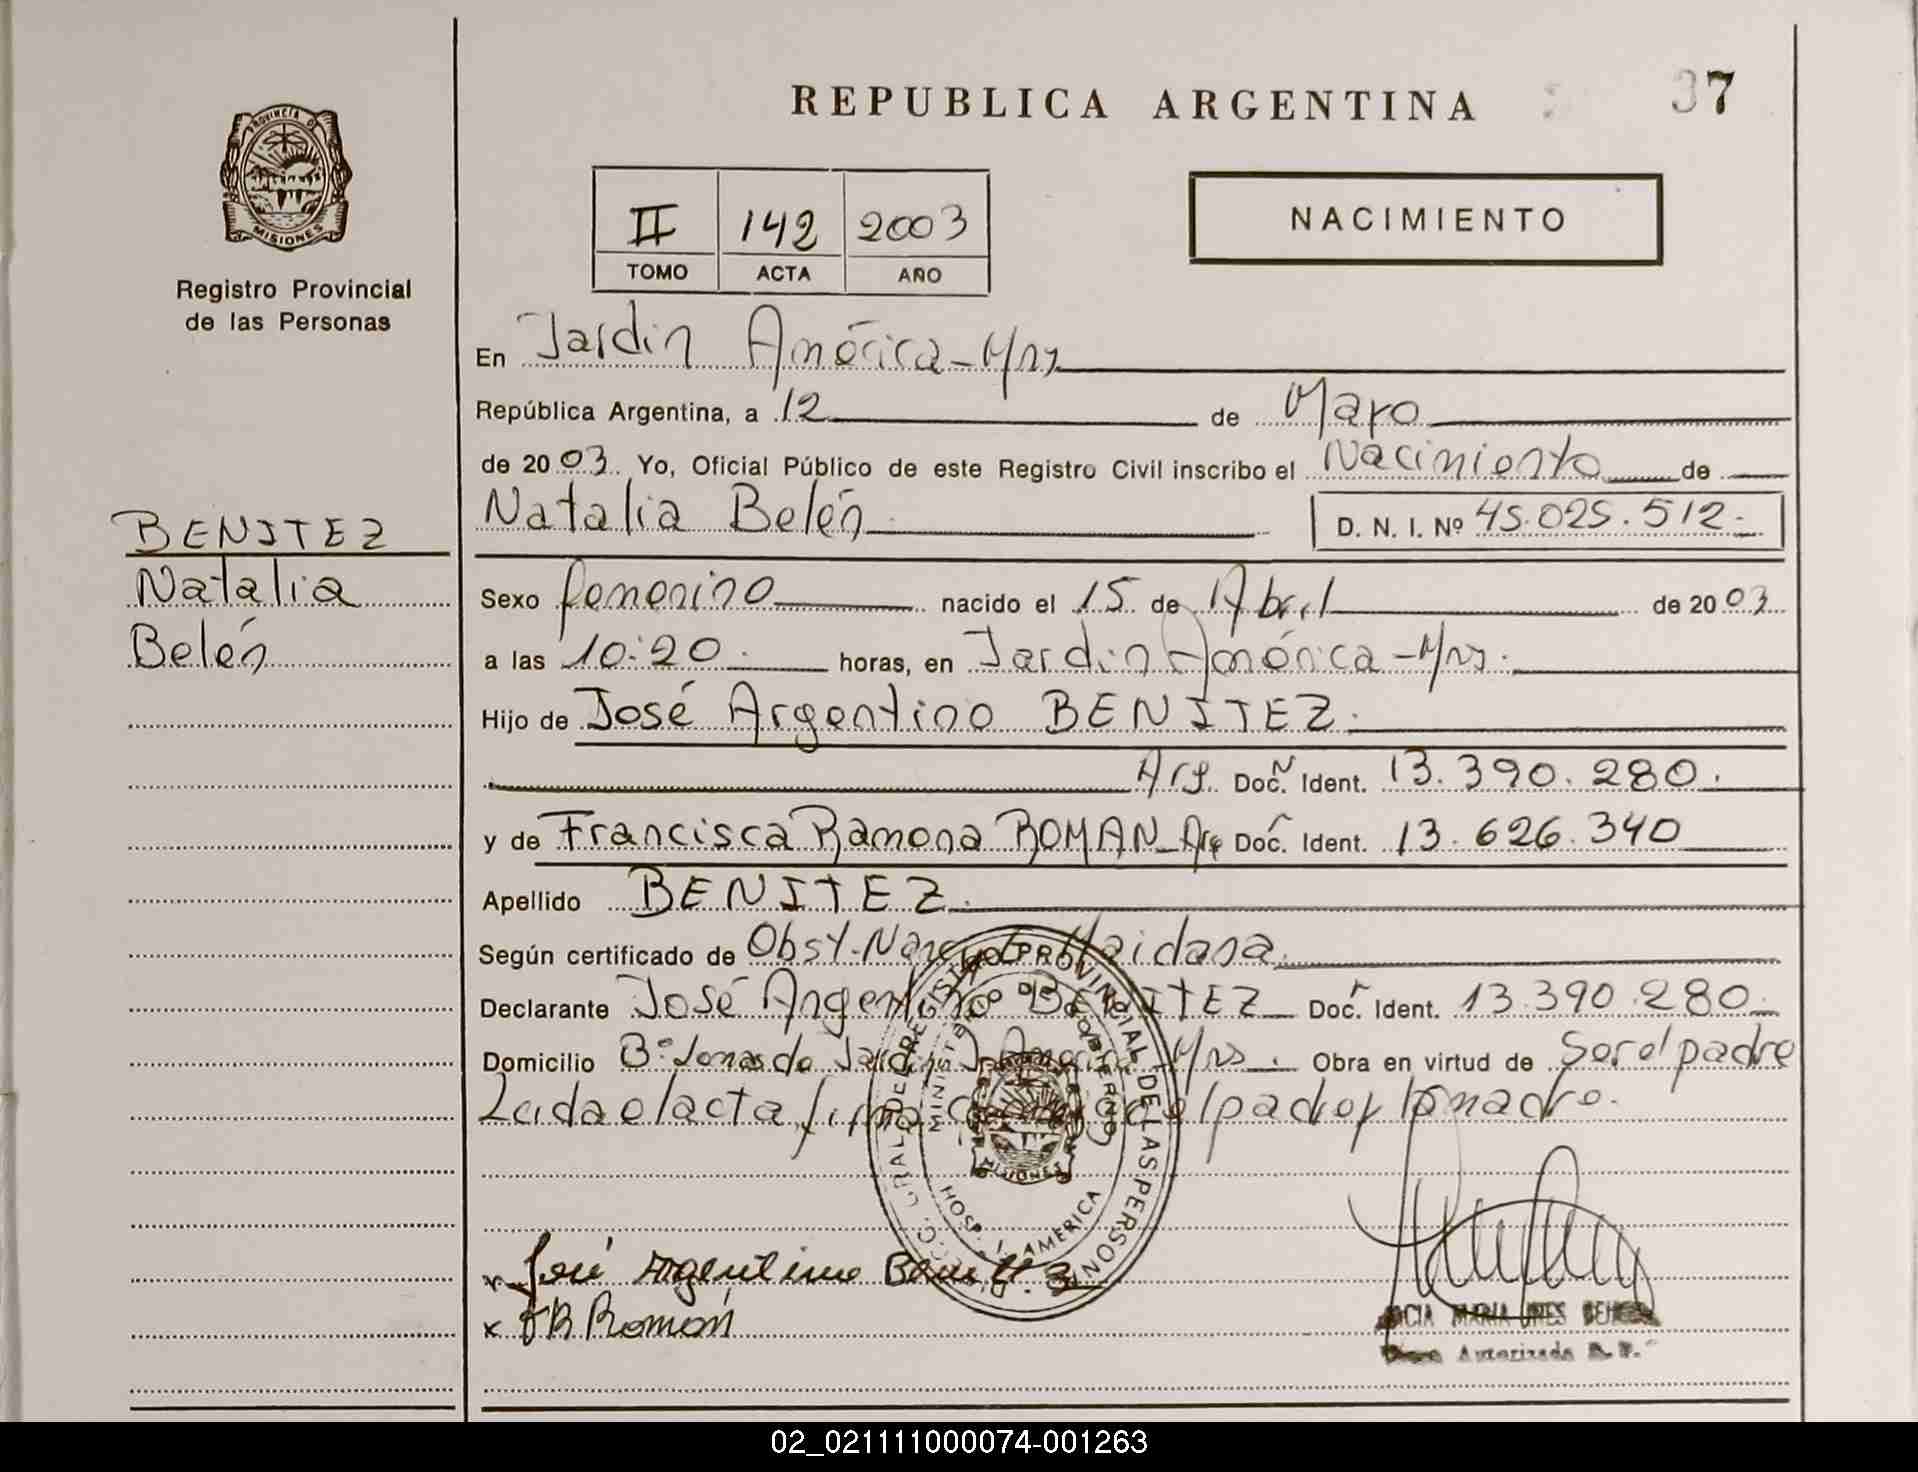 REPUBLICA ARGENTINA
37
PROVINCIA DE
MISIONES
Registro Provincial
de las Personas
II 142 2003
TOMO ACTA AÑO
NACIMIENTO
En Jardin América-Mns
República Argentina, a 12 de Mayo
de 2003 Yo, Oficial Público de este Registro Civil inscribo el Nacimiento de
Natalia Belén D. N. I. Nº 45.025.512.-
BENITEZ
Natalia
Belén
Sexo femenino nacido el 15 de Abril de 2003
a las 10:20 horas, en Jardin América-Mns.
Hijo de José Argentino BENITEZ.
Arg. Doc. N Ident. 13.390.280.
y de Francisca Ramona ROMAN Arg Doc. Ident. 13.626.340
Apellido BENITEZ.
Según certificado de Obst. Maidana
Declarante José Argentino BENITEZ Doc. Ident. 13.390.280.
Domicilio Bº Jardin América Mns. Obra en virtud de Ser el padre
Leida el acta, firma el padre y la madre.
REGISTRO PROVINCIAL DE LAS PERSONAS
MINISTERIO DE GOBIERNO
MISIONES
HOSP. J. AMERICA
x José Argentino Benitez
x F R Román
MARIA INES
Autorizada R. P.
02_021111000074-001263